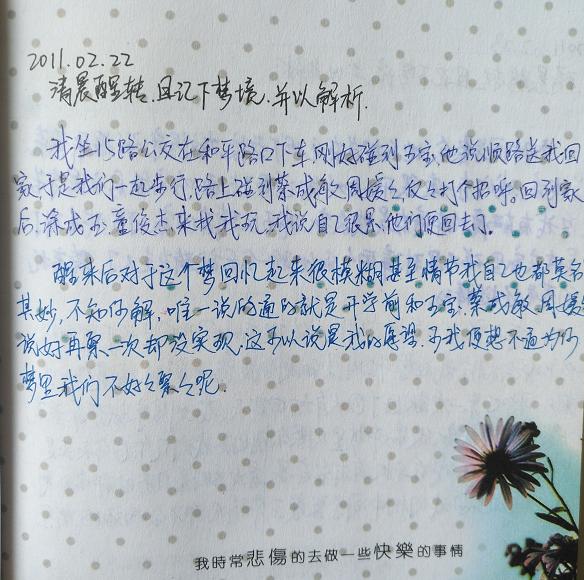 2011.02.22
清晨醒转,且记下梦境,并以解析.
我坐15路公交在和平路口下车,刚好碰到王宝,他说顺路送我回
家,于是我们一起步行,路上碰到蔡成敏,周媛々仅々打个招呼。回到家
后,涂成玉、童俊杰来找我玩,我说自己很累,他们便回去了。
醒来后对于这个梦回忆起来很模糊,甚至情节我自己也都莫名
其妙,不知何解,唯一说的通的就是开学前和王宝、蔡成敏、周媛
说好再聚一次却没实现,这可以说是我的愿望,可我便想不通为何
梦里我们不好々聚々呢.
我時常悲傷的去做一些快樂的事情